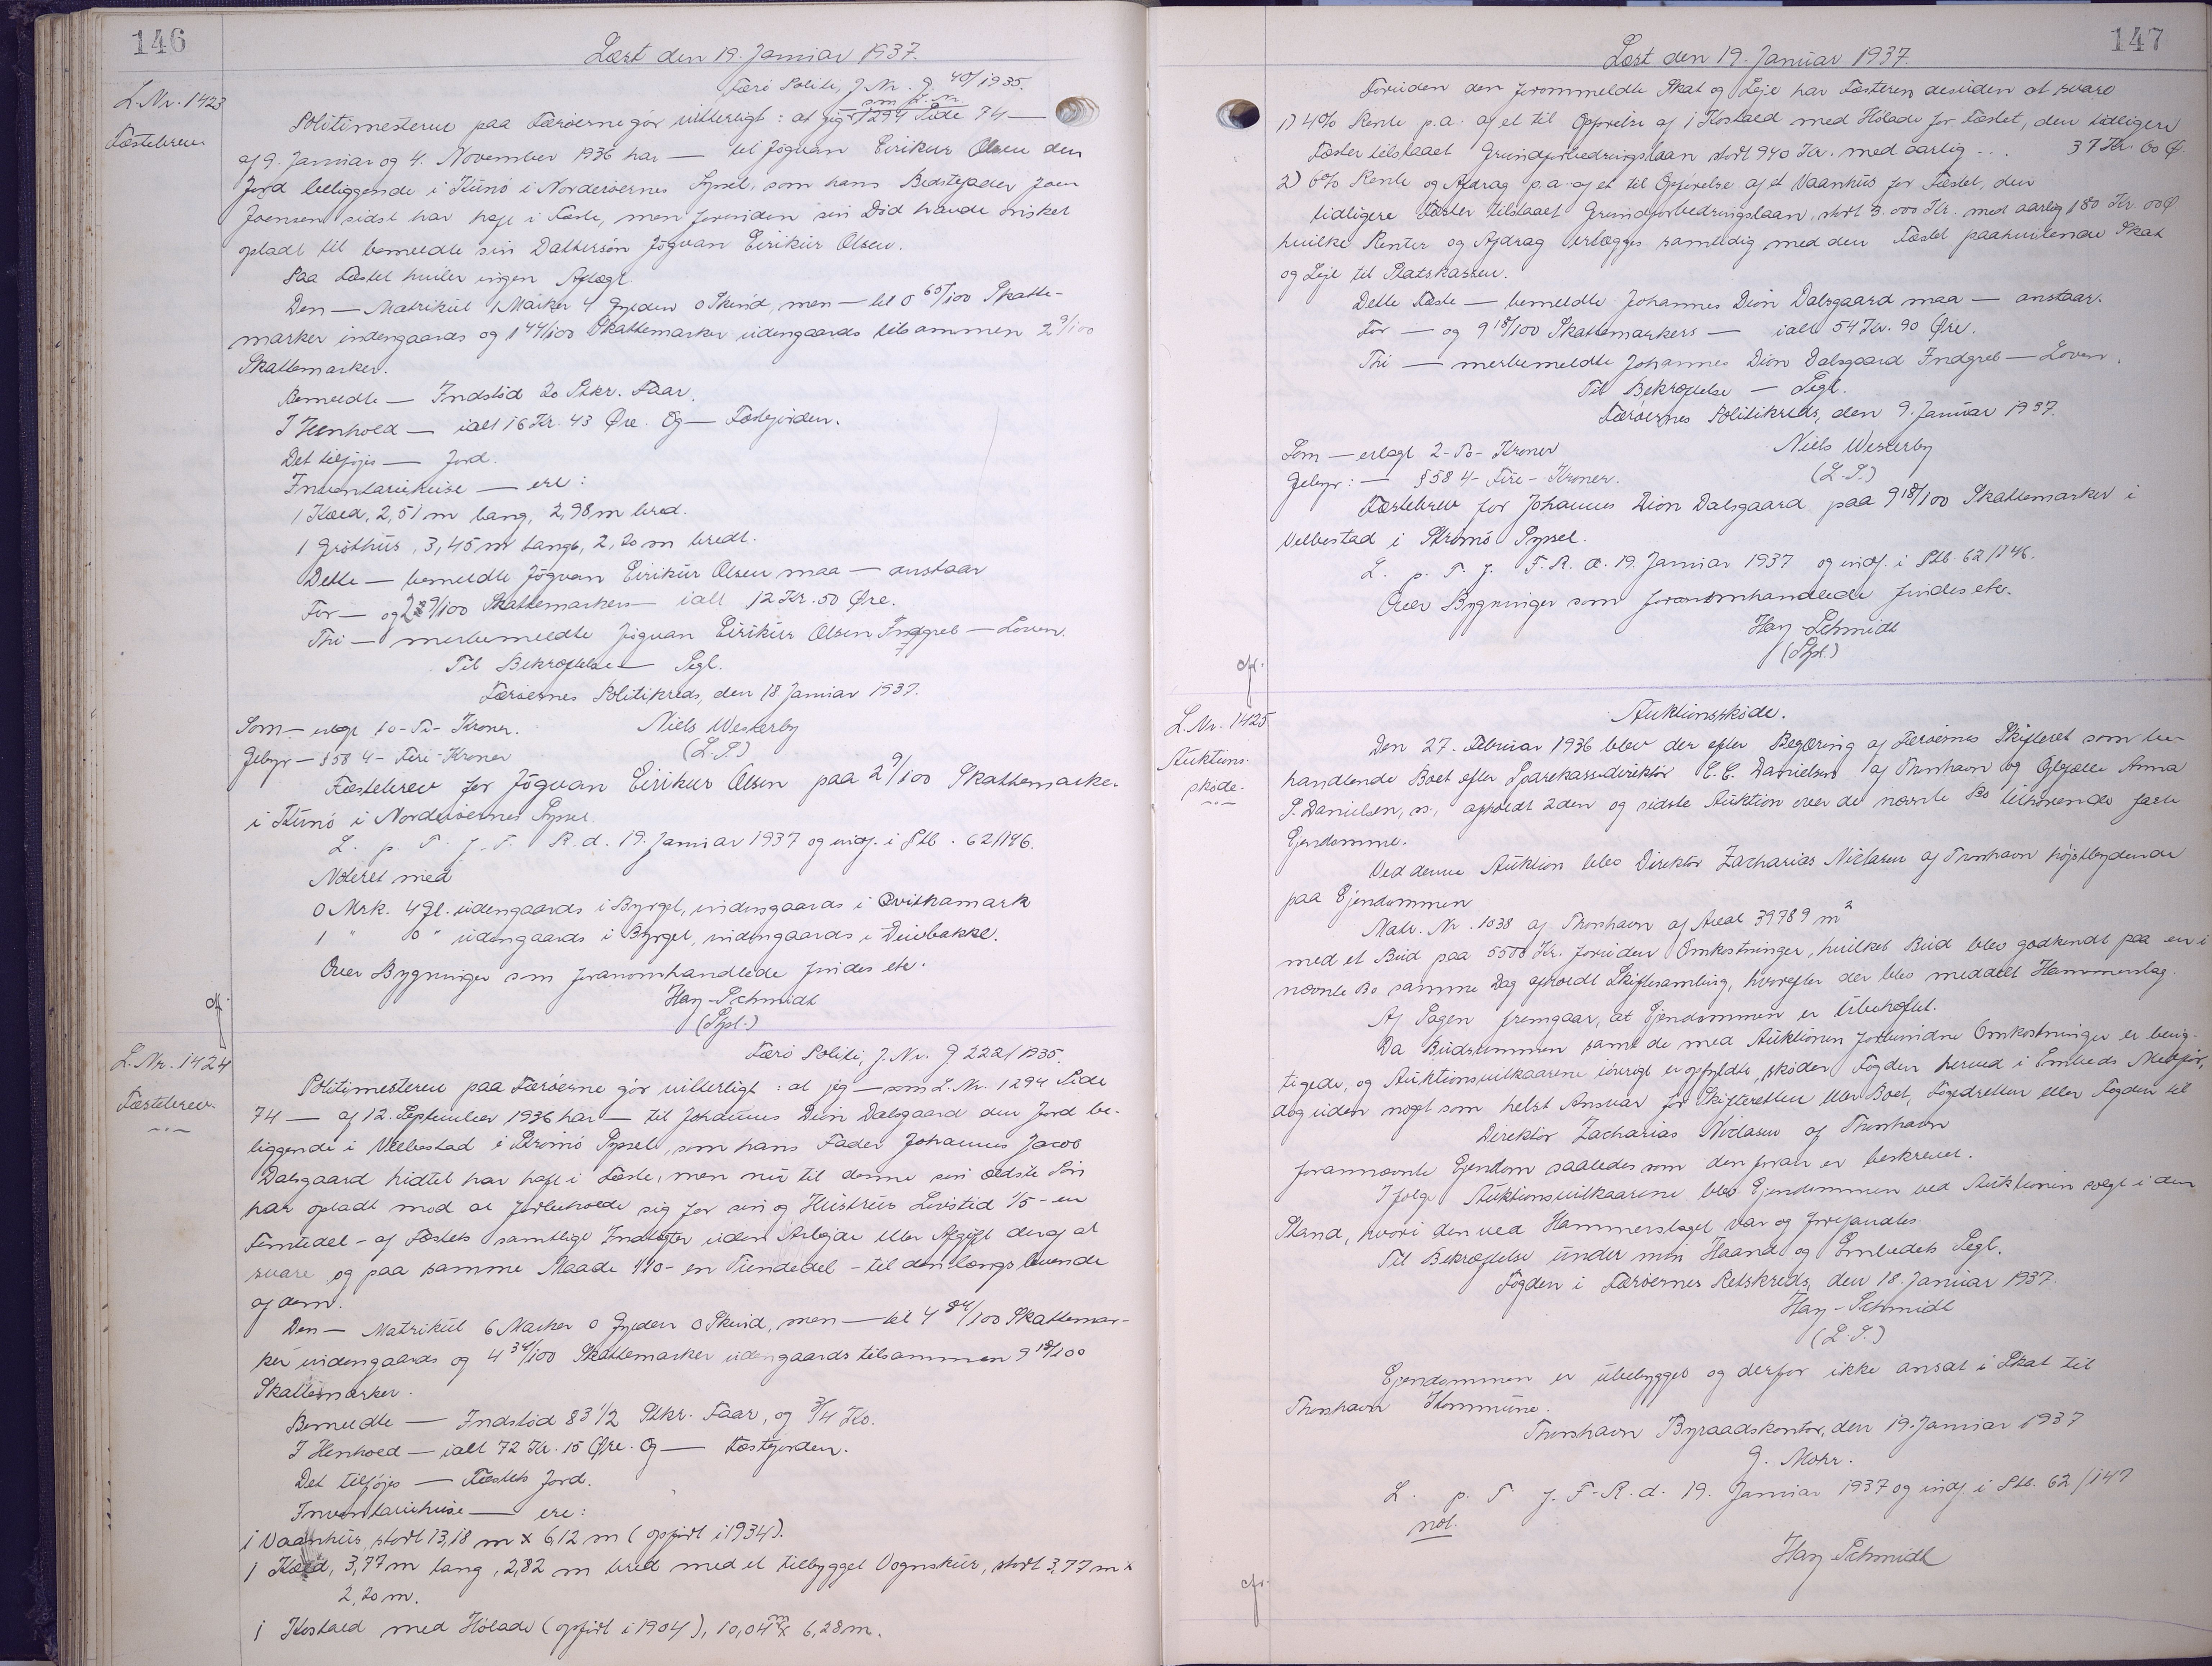 146
Læst den 19. Januar 1937.
L. Nr. 1423
Fæstebrev.
Færø Politi, J. Nr. G. 40/1935.
som L. Nr.
Politimesteren paa Færøerne gör vitterligt: at jeg - 1294 Side 74 —
af 9. Januar og 4. November 1936 har — til Jógvan Eirikur Olsen den
Jord beliggende i Kunö i Norderöernes Syssel, som hans Bedstefader Joen
Joensen sidst har haft i Fæste, men forinden sin Död havde önsket
opladt til bemeldte sin Dattersön Jógvan Eirikur Olsen.
Paa Fæstet hviler ingen Aftægt.
Den — Matrikul 1 Marker 4 Gylden 0 Skind, men — til 0 65/100 Skatte-
marker indengaards og 1 44/100 Skattemarker udengaards tilsammen 2 9/100
Skattemarker.
Bemeldte — Indstöd 20 Stkr. Faar.
I Henhold — ialt 16 Kr. 43 Øre. Og — Fæstejorden.
Det tilföjes — Jord.
Inventariehuse — ere:
1 Kæld, 2,51 m lang, 2,98 m bred.
1 Gröthus, 3,45 m langt, 2,20 m bredt.
Dette — bemeldte Jógvan Eirikur Olsen maa — anstaar
For — og 2 9/100 Skattemarkers — ialt 12 Kr. 50 Øre.
Thi — merbemeldte Jógvan Eirikur Olsen Indgreb — Loven.
Til Bekræftelse — Segl.
Færöernes Politikreds, den 18. Januar 1937.
Som — erlagt 10 - Ti - Kroner. Niels Westerby
Gebyr — § 58 4 - Fire - Kroner (L.S.)
Fæstebrev for Jógvan Eirikur Olsen paa 2 9/100 Skattemarker
i Kunö i Norderöernes Syssel.
L. p. T. f. F. R. d. 19. Januar 1937 og indf. i Stb. 62/146.
Noteret med
0 Mrk. 4 Gl. udengaards i Byrgt, indengaards i Qvithamark
1 " 0 " udengaards i Byrget, indengaards i Deiebakke.
Over Bygninger som foranomhandlede findes ete.
Hay-Schmidt
(Spl.)
cfr.
L. Nr. 1424
Fæstebrev.
Færö Politi, J. Nr. G 222/1935.
Politimesteren paa Færöerne gör vitterligt: at jeg — som L. Nr. 1294 Side
74 — af 12. September 1936 har — til Johannes Dion Dalsgaard den Jord be-
liggende i Velbestad i Strömö Syssel, som hans Fader Johannes Jacob
Dalsgaard hidtil har haft i Fæste, men nu til denne sin ældste Sön
har opladt mod at forbeholde sig for sin og Hustrus Livstid 1/5 - en
Femtedel - af Fæstets samtlige Indtægter uden Arbejde eller Afgift deraf at
svare og paa samme Maade 1/10 - en Tiendedel - til den længstlevende
af dem.
Den — Matrikul 6 Marker 0 Gylden 0 Skind, men — til 4 84/100 Skattemar-
ker indengaards og 4 34/100 Skattemarker udengaards tilsammen 9 18/100
Skattemarker.
Bemeldte — Indstöd 83 1/2 Stkr. Faar, og 3/4 Ko.
I Henhold — ialt 72 Kr. 15 Øre. Og — Fæstejorden.
Det tilföjes — Fæstets Jord.
Inventariehuse — ere:
1 Vaanhus, stort 13,18 m x 6,12 m (opfört i 1934).
1 Kæld, 3,77 m lang, 2,82 m bred med et tilbygget Vognskur, stort 3,77 m x
2,20 m.
1 Kostald med Hölade (opfört i 1904), 10,04 m x 6,28 m.
147
Læst den 19. Januar 1937.
Foruden den forommeldte Skat og Leje har Fæsteren desuden at svare
1) 4% Rente p.a. af et til Opförelse af 1 Kostald med Hölade for Fæstet, den tidligere
Fæster tilstaaet Grundforbedringslaan stort 940 Kr. med aarlig . . . 37 Kr. 60 Ø.
2) 6% Rente og Afdrag p.a. af et til Opförelse af et Vaanhus for Fæstet, den
tidligere Fæster tilstaaet Grundforbedringslaan, stort 3.000 Kr. med aarlig 180 Kr 00 Ø.
hvilke Renter og Afdrag erlægges samtidig med den Fæstet paahvilende Skat
og Leje til Statskassen.
Dette Fæste — bemeldte Johannes Dion Dalsgaard maa — anstaar.
For — og 9 18/100 Skattemarkers — ialt 54 Kr. 90 Øre.
Thi — merbemeldte Johannes Dion Dalsgaard Indgreb — Loven.
Til Bekræftelse — Segl.
Færöernes Politikreds, den 9. Januar 1937.
Som — erlagt 2 - To - Kroner Niels Westerby
Gebyr: — § 58 4 - Fire - Kroner. (L.S.)
Fæstebrev for Johannes Dion Dalsgaard paa 9 18/100 Skattemarker i
Velbestad i Strömö Syssel.
L. p. T. f. F. R. d. 19. Januar 1937 og indf. i Stb. 62/146.
Over Bygninger som foranomhandlede findes ete.
Hay-Schmidt
(Spl.)
cfr.
L. Nr. 1425
Auktions-
skøde.
Auktionsskøde.
Den 27. Februar 1936 blev der efter Begæring af Færöernes Skifteret som be-
handlende Boet efter Sparekassedirektör C. C. Danielsen af Thorshavn og Ægtefælle Anna
S. Danielsen, m, afholdt 2den og sidste Auktion over de nævnte Bo tilhørende faste
Ejendomme.
Ved denne Auktion blev Direktör Zacharias Niclasen af Thorshavn höjstbydende
paa Ejendommen
Matr. Nr. 1038 af Thorshavn af Areal 39789 m²
med et Bud paa 5500 Kr. foruden Omkostninger, hvilket Bud blev godkendt paa en i
nævnte Bo samme Dag afholdt Skiftesamling, hvorefter der blev meddelt Hammerslag.
Af Sagen fremgaar, at Ejendommen er ubehæftet.
Da Budsummen samt de med Auktionen forbundne Omkostninger er berig-
tigede, og Auktionsvilkaarene iövrigt er opfyldte, sköder Fogden herved i Embeds Medför,
dog uden noget som helst Ansvar for Skifteretten eller Boet, Fogedretten eller Fogden til
Direktör Zacharias Niclasen af Thorshavn
forannævnte Ejendom saaledes som den foran er beskrevet.
Ifölge Auktionsvilkaarene blev Ejendommen ved Auktionen solgt i den
Stand, hvori den ved Hammerslaget var og forefandtes.
Til Bekræftelse under min Haand og Embedets Segl.
Fogden i Færöernes Retskreds, den 18. Januar 1937.
Hay-Schmidt
(L.S.)
Ejendommen er ubebygget og derfor ikke ansat i Skat til
Thorshavn Kommune.
Thorshavn Byraadskontor, den 19. Januar 1937
G. Mohr.
L. p. T f. F. R. d. 19. Januar 1937 og indf. i Stb. 62/147
not.
Hay Schmidt
cfr.